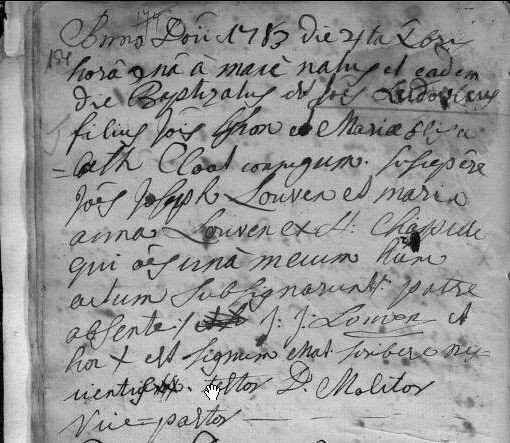 Anno Dõi 1783 die 4ta Xbris
horâ 9nâ â mane natus et eadem
die Baptizatus est Joês Ludovicus
filius Joîs et Mariæ Elisa
=beth Cloot conjugum. Suscepêre
Joês Joseph Louven et maria
anna Louven ex H: Chapelle
qui oês unà mecum hunc
actum Subsignarunt patre
absente: J: J: Louven et
hoc X est signum matrinæ scribere nes-
cientis. testor D. Molitor
Vice-pastor